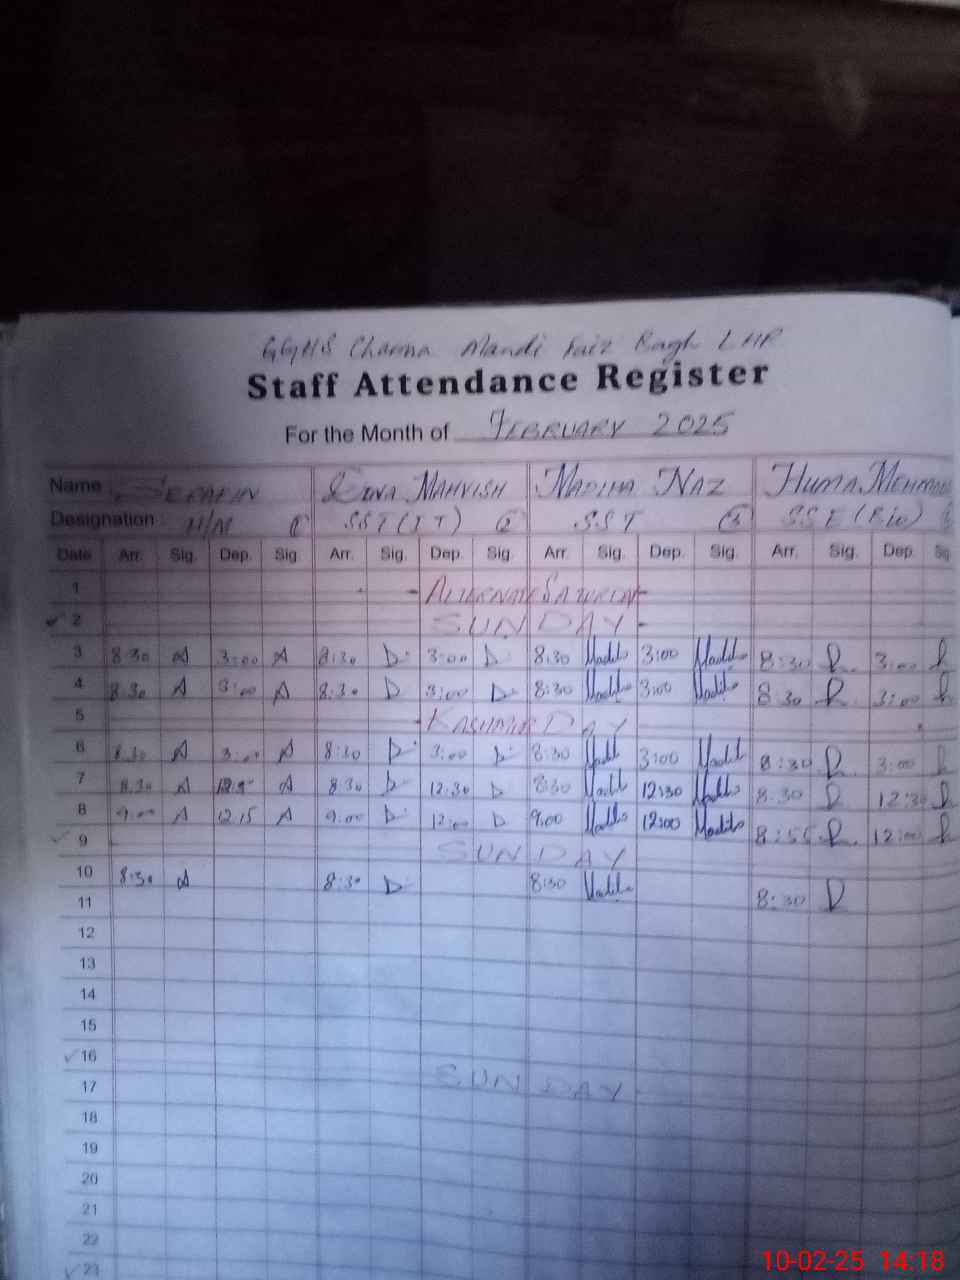 GGHS Charma Mandi Faiz Bagh LHR
Staff Attendance Register
For the Month of FEBRUARY 2025
Name MAHVISH MADIHA NAZ HUMA
Designation H/M 1 SST (IT) 2 SST 3 SSE (Bio)
Date Arr. Sig. Dep. Sig. Arr. Sig. Dep. Sig. Arr. Sig. Dep. Sig. Arr. Sig. Dep. Sig
1 ALTERNATE
2 SUNDAY
3 8:30 A 3:00 A 8:30 D 3:00 D 8:30 3:00 8:30 3:00
4 8:30 A 3:00 A 8:30 D 3:00 D 8:30 3:00 8:30 3:00
5 KASHMIR DAY
6 8:30 A A 8:30 D 3:00 D 8:30 3:00 8:30 3:00
7 8:30 A A 8:30 D 12:30 D 8:30 12:30 8:30 12:30
8 9:00 A 12:15 A 9:00 D 12:00 D 9:00 12:00 8:55 12:00
9 SUNDAY
10 8:30 A 8:30 D 8:30 8:30
11
12
13
14
15
16 SUNDAY
17
18
19
20
21
22
23
10-02-25 14:18